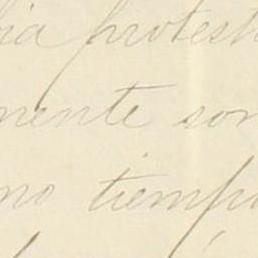 ia protest
mente son
no tiemp